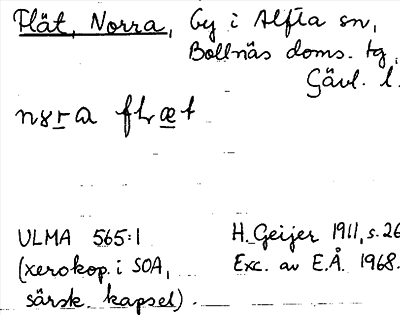 Flät, Norra, By i Alfta sn,
Bollnäs doms. tg,
Gävl. l.
norra flæt
ULMA 565:1 H. Geijer 1911, s. 26
(xerokop. i SOA, Exc. av E.Å. 1968.
särsk. kapsel).